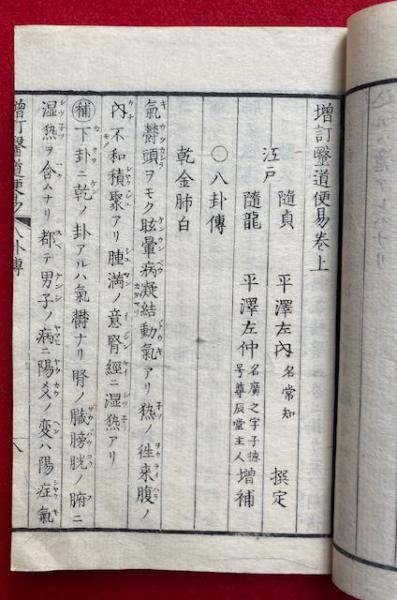 增訂醫道便易卷上
江戸 隨貞 平澤左内 名常知 撰定
隨龍 平澤左仲 名廣之字子德 号尊辰堂主人 增補
○八卦傳
乾金肺白
氣欝頭ヲモク眩暈病凝結動氣アリ𤍠ノ徃来腹ノ
内不和積聚アリ腫満ノ意腎經ニ湿𤍠アリ
補下卦ニ乾ノ卦アルハ氣欝ナリ腎ノ臓膀胱ノ腑ニ
湿𤍠ヲ含ムナリ都テ男子ノ病ニ陽爻ノ変ハ陽症氣
增訂醫道便易 八卦傳
八